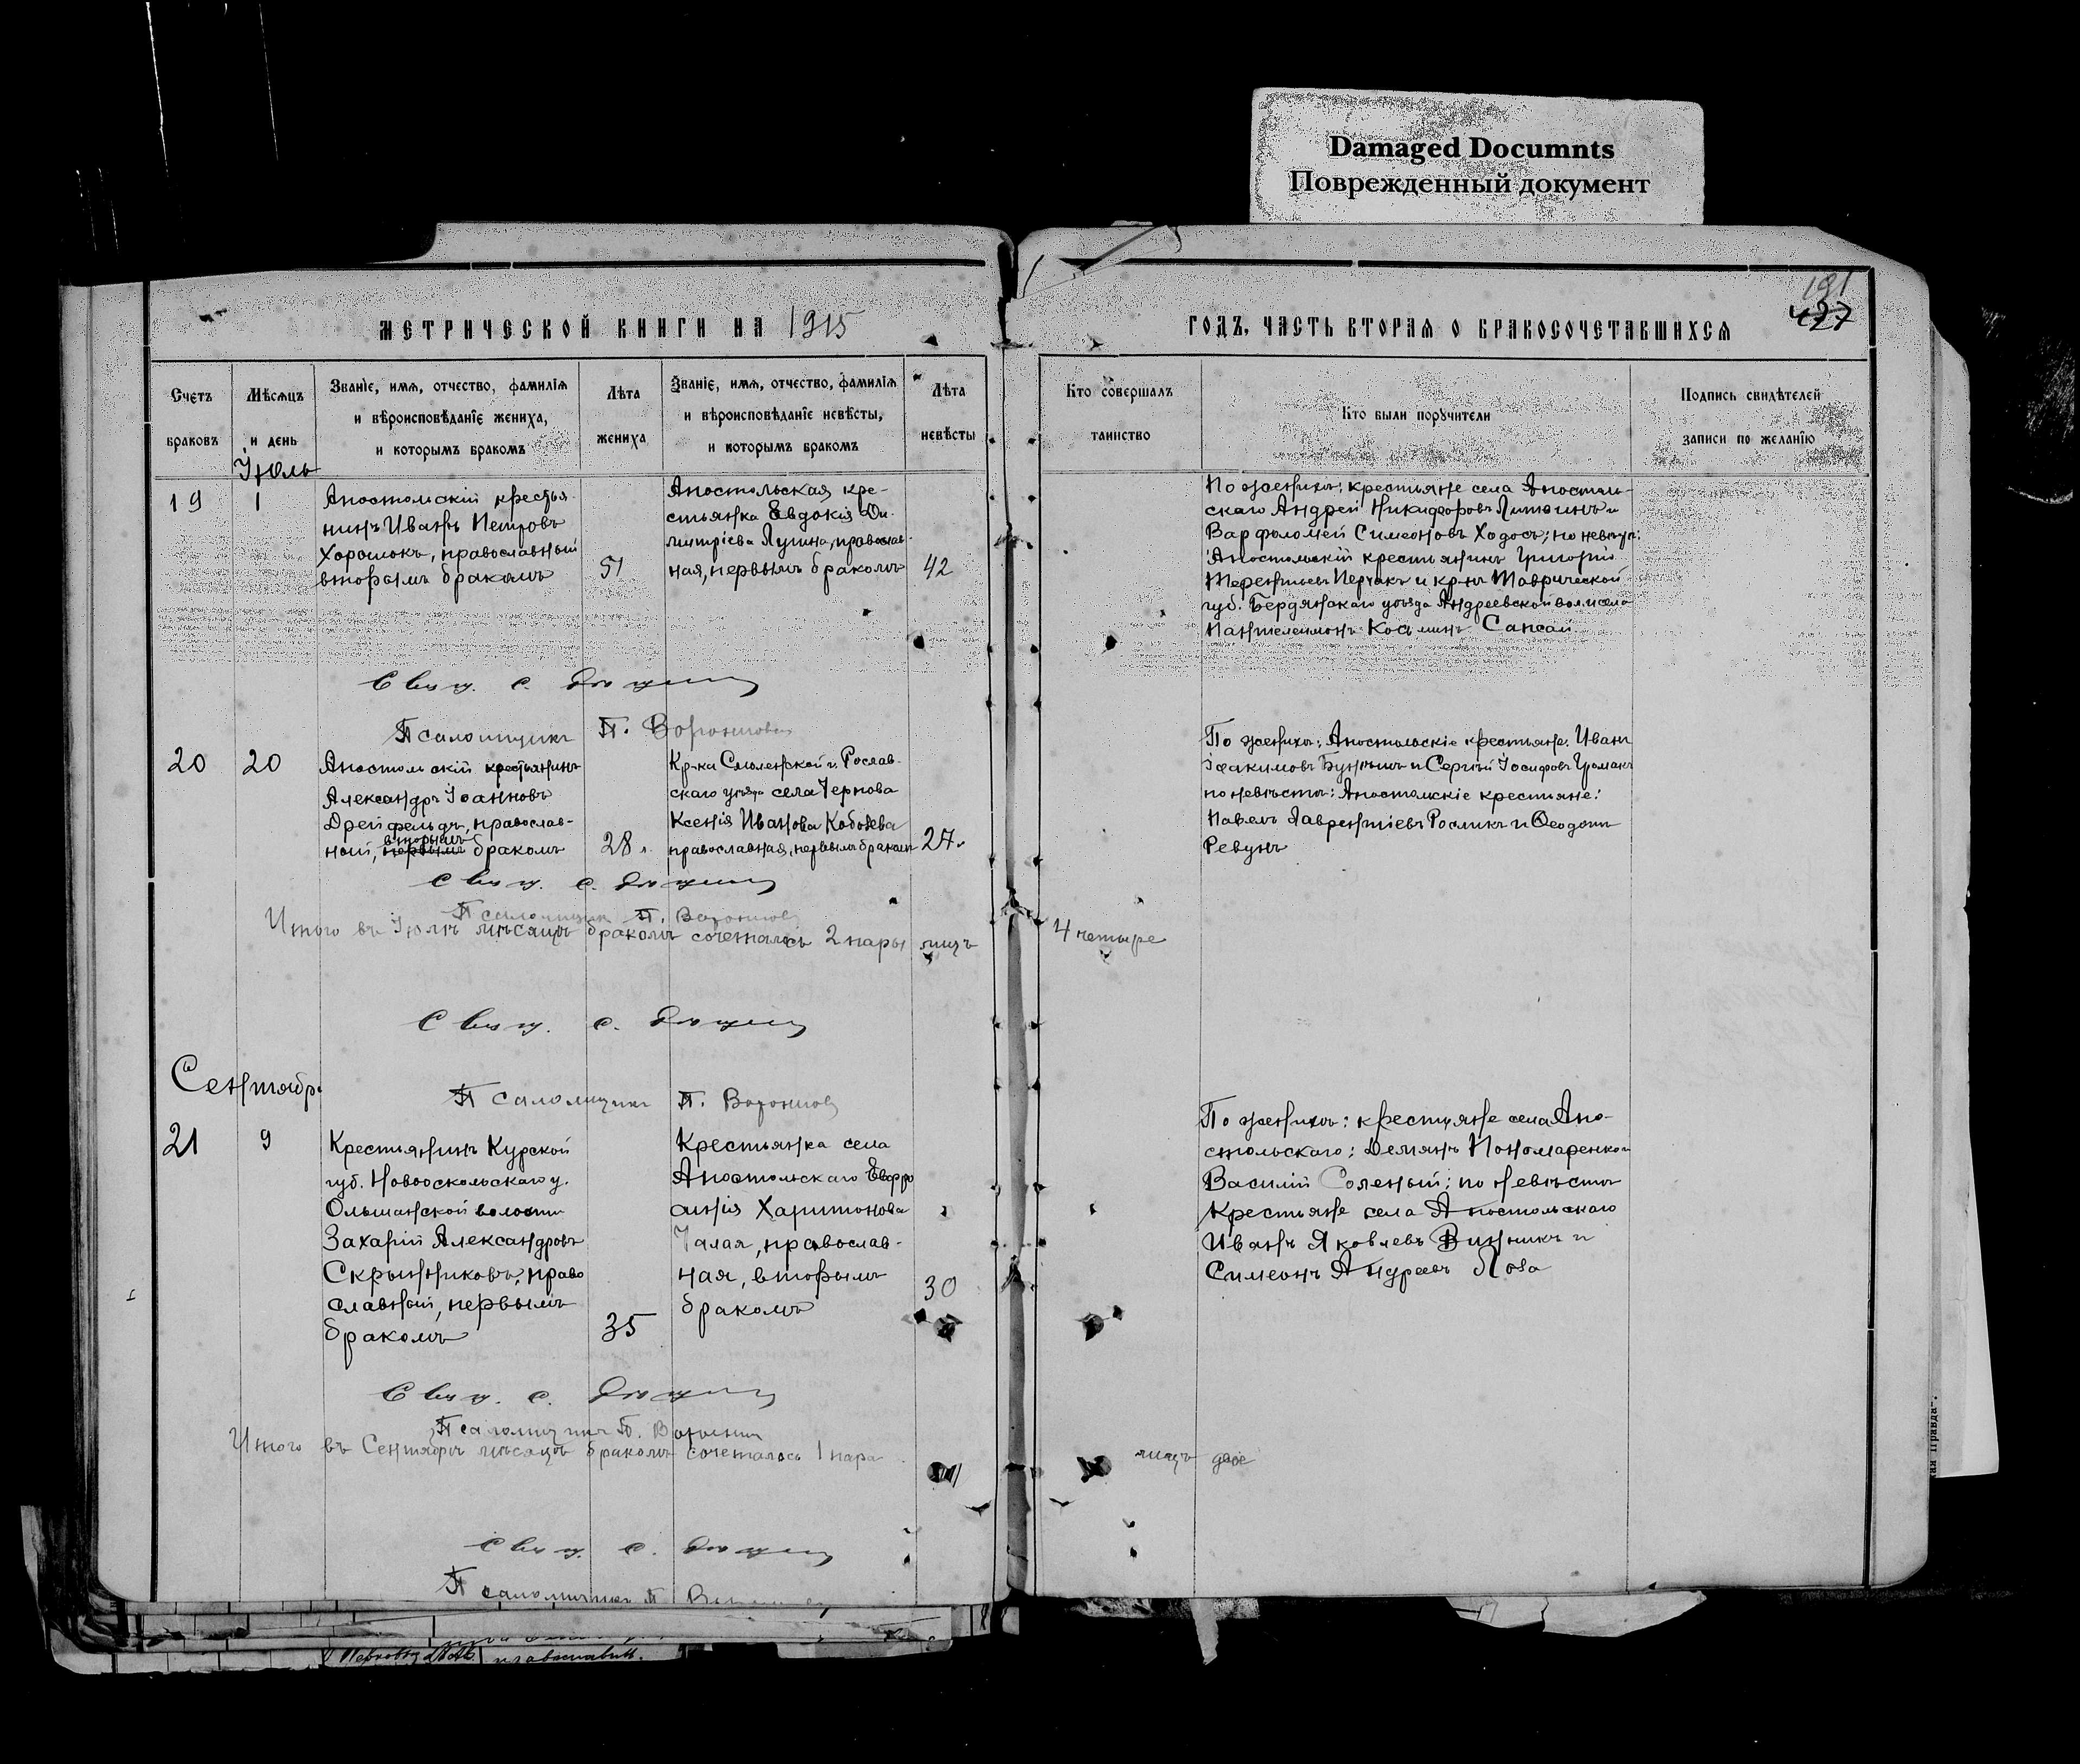 Damaged Documnts
Поврежденный документ
191
427
МЕТРИЧЕСКОЙ КНИГИ НА 1915
ГОДЪ, ЧАСТЬ ВТОРАЯ О БРАКОСОЧЕТАВШИХСЯ
Счетъ
браковъ
Мѣсяцъ
и день
Званіе, имя, отчество, фамилія
и вѣроисповѣданіе жениха,
и которымъ бракомъ
Лѣта
жениха
Званіе, имя, отчество, фамилія
и вѣроисповѣданіе невѣсты,
и которымъ бракомъ
Лѣта
невѣсты
Кто совершалъ
таинство
Кто были поручители
Подпись свидѣтелей
записи по желанію
Іюль
19
1
Апостольскій крестья
нинъ Иванъ Петровъ
Хорошокъ, православный
вторымъ бракомъ
51
Апостольская кре-
стьянка Евдокія Ди-
митріева Лугина, православ-
ная, первымъ бракомъ
42
По женихѣ: крестьяне села Апостоль-
скаго Андрей Никифоровъ Литвинъ и
Варфоломей Симеоновъ Ходосъ; по невѣстѣ:
Апостольскій крестьянинъ Григорій
Терентьевъ Перчакъ и кр-нъ Таврической
губ. Бердянскаго уѣзда Андреевской вол. и села
Пантелеимонъ Косминъ Сапсай.
Свящ. с.
Псаломщикъ П. Воронцовъ
20
20
Апостольскій крестьянинъ
Александръ Іоанновъ
Дрейфельдъ, православ-
вторымъ
ный, первымъ бракомъ
28.
Кр-ка Смоленской г. Рослав-
скаго уѣзда села Чернова
Ксенія Иванова Кобозева
православная, первымъ бракомъ
27.
По женихѣ: Апостольскіе крестьяне: Иванъ
Іоакимовъ и Сергій Іосифовъ
по невѣстѣ: Апостольскіе крестьяне:
Павелъ Лаврентіевъ Рослякъ и
Ревунъ
Свящ. с.
Псаломщикъ П. Воронцовъ
Итого въ Іюлѣ мѣсяцѣ бракомъ сочеталось 2 пары лицъ 4 четыре
Свящ. с.
Сентябрь
Псаломщикъ П. Воронцовъ
21
9
Крестьянинъ Курской
губ. Новооскольскаго у.
Ольшанской волости
Захарій Александровъ
Скрынниковъ, право
славный, первымъ
бракомъ
35
Крестьянка села
Апостольскаго Евфро
синія Харитонова
Чалая, православ-
ная, вторымъ
бракомъ
30
По женихѣ: крестьяне села Апо-
стольскаго: Демянъ Пономаренко и
Василій Соленый; по невѣстѣ
крестьяне села Апостольскаго
Иванъ Яковлевъ Винникъ и
Симеонъ Андреевъ Лоза
Свящ. с.
Псаломщикъ П. Воронцовъ
Итого въ Сентябрѣ мѣсяцѣ бракомъ сочеталось 1 пара лицъ двое
Свящ. с.
Псаломщикъ П.